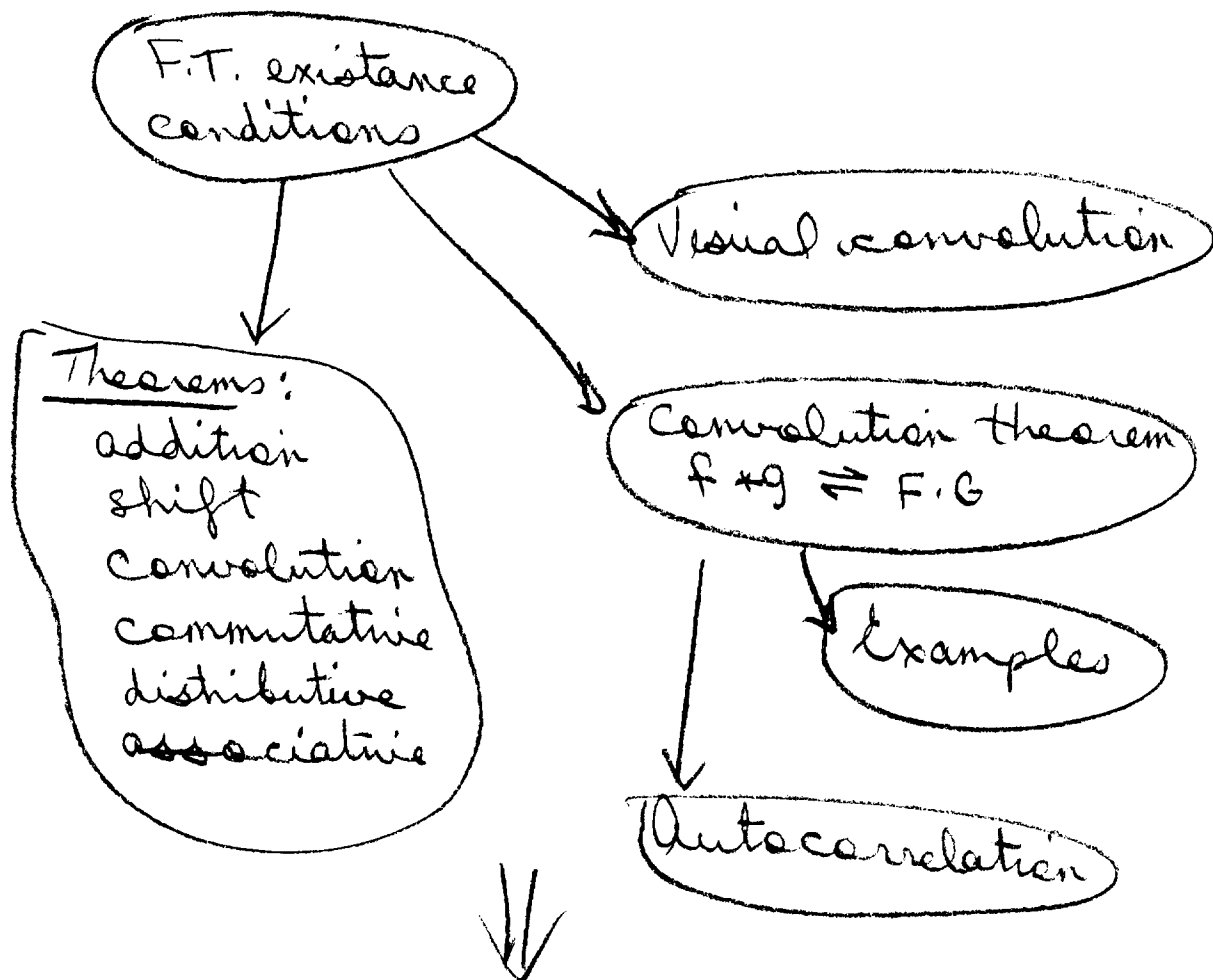 F.T. existance
conditions
Visual convolution
Theorems:
addition
shift
convolution
commutative
distributive
associative
Convolution theorem
f * g ⇌ F.G
Examples
Autocorrelation